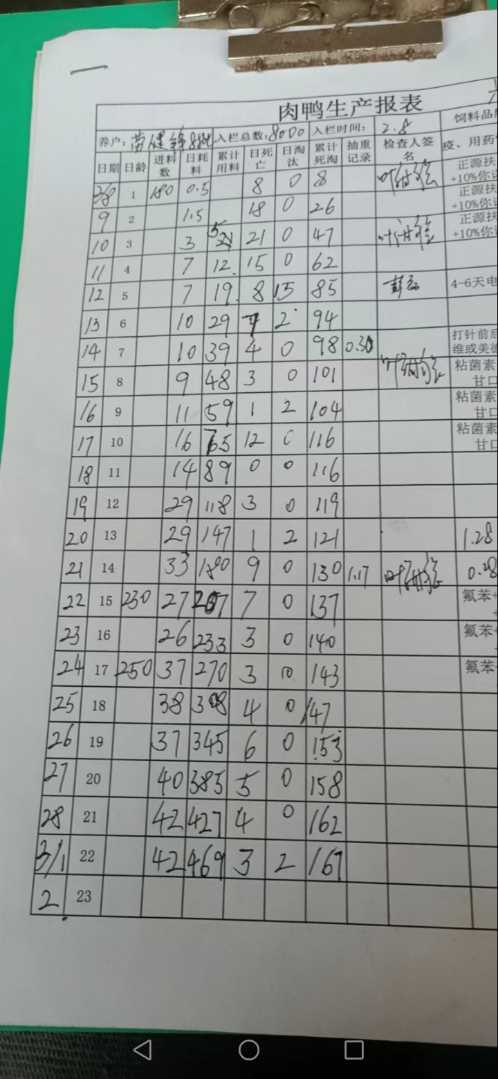 肉鸭生产报表
养户: 入栏总数: 8000 入栏时间: 2.8 饲料品
日期 日龄 进料数 日耗料 累计用料 日死亡 日淘汰 累计死淘 抽重记录 检查人签名 疫、用药
1 180 0.5 8 0 8 正源扶 +10%你
9 2 1.5 18 0 26 正源扶 +10%你
10 3 3 5 21 0 47 正源扶 +10%你
11 4 7 12 15 0 62
12 5 7 19 8 15 85 4-6天电
13 6 10 29 7 2 94
14 7 10 39 4 0 98 0.30 打针前后 维或美
15 8 9 48 3 0 101 粘菌素 甘口
16 9 11 59 1 2 104 粘菌素 甘口
17 10 16 75 12 0 116 粘菌素 甘口
18 11 14 89 0 0 116
19 12 29 118 3 0 119
20 13 29 147 1 2 121 1.28
21 14 33 180 9 0 130 1.17 0.28
22 15 230 27 207 7 0 137 氟苯
23 16 26 233 3 0 140 氟苯
24 17 250 37 270 3 0 143 氟苯
25 18 38 308 4 0 147
26 19 37 345 6 0 153
27 20 40 385 5 0 158
28 21 42 427 4 0 162
3/1 22 42 469 3 2 167
2 23